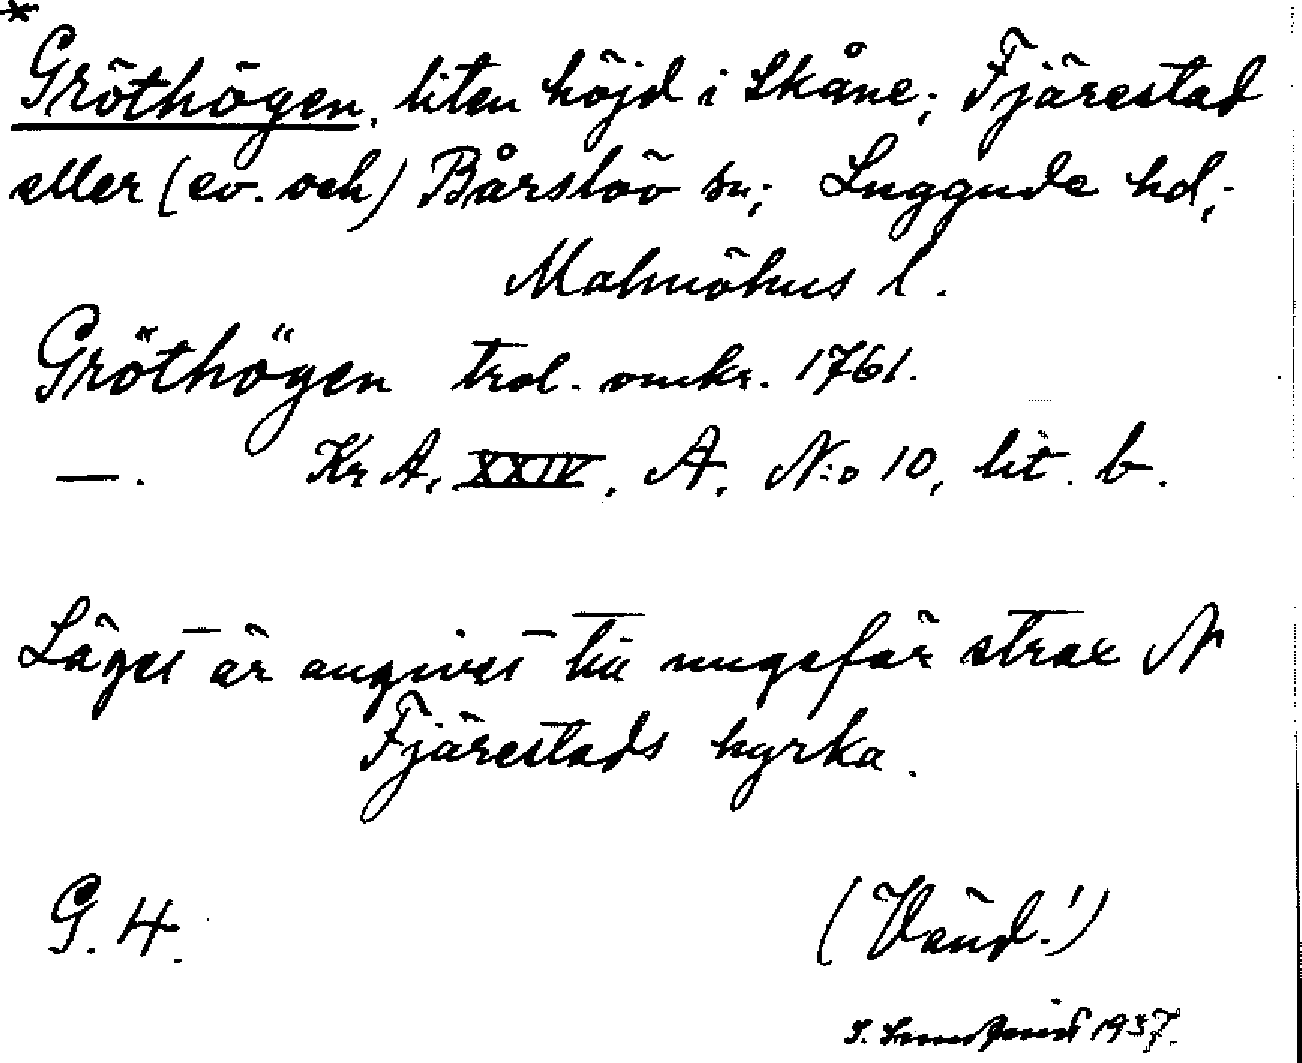 *
Gröthögen, liten höjd i Skåne; Fjärestad
eller (ev. och) Bårslöv sn; Luggude hd;
Malmöhus l.
Gröthögen trol. omkr. 1761.
—. Kr A, XXIV, A, N:o 10, lit. b.
Läget är angivet till ungefär strax N
Fjärestads kyrka.
G. 4.
(Vänd!)
S. 1937.